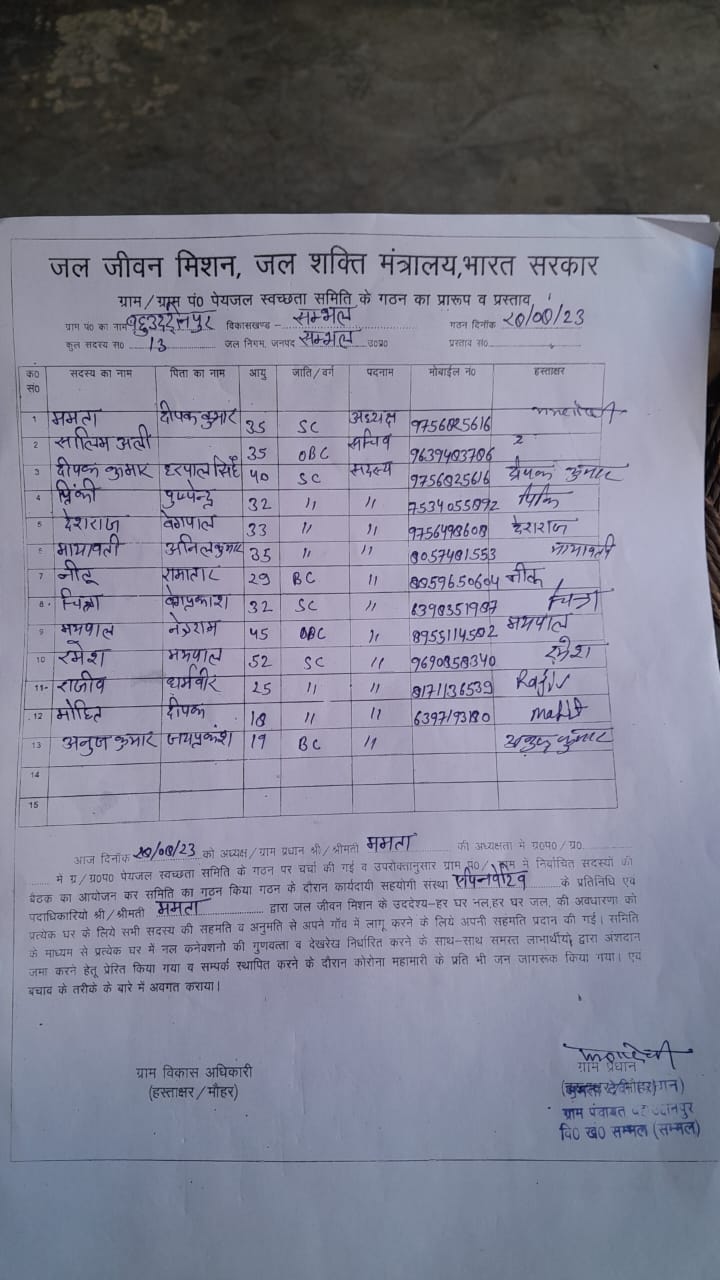 जल जीवन मिशन, जल शक्ति मंत्रालय,भारत सरकार
ग्राम/ग्राम पं0 पेयजल स्वच्छता समिति के गठन का प्रारूप व प्रस्ताव
ग्राम पं0 का नाम विकासखण्ड - सम्भल गठन दिनॉक 20/08/23
कुल सदस्य स0 13 जल निगम, जनपद सम्भल उ0प्र0 प्रस्ताव सं0
क0 सं0 सदस्य का नाम पिता का नाम आयु जाति/वर्ग पदनाम मोबाईल नं0 हस्ताक्षर
1 ममता दीपक कुमार 35 SC अध्यक्ष 9756825616
2 सालिम अली 35 OBC सचिव 9639483786
3 दीपक कुमार हरपाल सिंह 40 SC सदस्य 9756825616 दीपक कुमार
4 पिंकी पुष्पेन्द्र 32 " " 7534055892 पिंकी
5 देशराज वेगपाल 33 " " 9756498608 देशराज
6 मायावती अनिल कुमार 35 " " 8057481553 मायावती
7 नीतू रामौतार 29 BC " 8859650604
8 चित्रा वेदप्रकाश 32 SC " 6398351987 चित्रा
9 भमपाल नेत्रराम 45 OBC " 8955114582 भमपाल
10 रमेश भमपाल 52 SC " 9690858340 रमेश
11 राजीव धर्मवीर 25 " " 8171136539 Rajiv
12 मोहित दीपक 18 " " 6397193180 Mohit
13 अनुज कुमार जयप्रकाश 19 BC " अनुज कुमार
14
15
आज दिनॉक 20/08/23 को अध्यक्ष/ग्राम प्रधान श्री/श्रीमती ममता की अध्यक्षता में ग्र0प0/ग्र0
में ग्र/ग्र0प0 पेयजल स्वच्छता समिति के गठन पर चर्चा की गई व उपरोक्तानुसार ग्राम प0/ग्राम में निर्वाचित सदस्यों की
बैठक का आयोजन कर समिति का गठन किया गया गठन के दौरान कार्यदायी सहयोगी संस्था के प्रतिनिधि एवं
पदाधिकारियो श्री/श्रीमती ममता द्वारा जल जीवन मिशन के उददेश्य-हर घर नल,हर घर जल, की अवधारणा को
प्रत्येक घर के लिये सभी सदस्य की सहमति व अनुमति से अपने गॉव में लागू करने के लिये अपनी सहमति प्रदान की गई। समिति
के माध्यम से प्रत्येक घर में नल कनेक्शनो की गुणवत्ता व देखरेख निर्धारित करने के साथ-साथ समस्त लाभार्थीयो द्वारा अंशदान
जमा करने हेतू प्रेरित किया गया व सम्पर्क स्थापित करने के दौरान कोरोना महामारी के प्रति भी जन जागरूक किया गया। एव
बचाव के तरीके के बारे में अवगत कराया।
ग्राम विकास अधिकारी
(हस्ताक्षर/मौहर)
ग्राम प्रधान
ग्राम पंचायत
वि0 खं0 सम्भल (सम्भल)